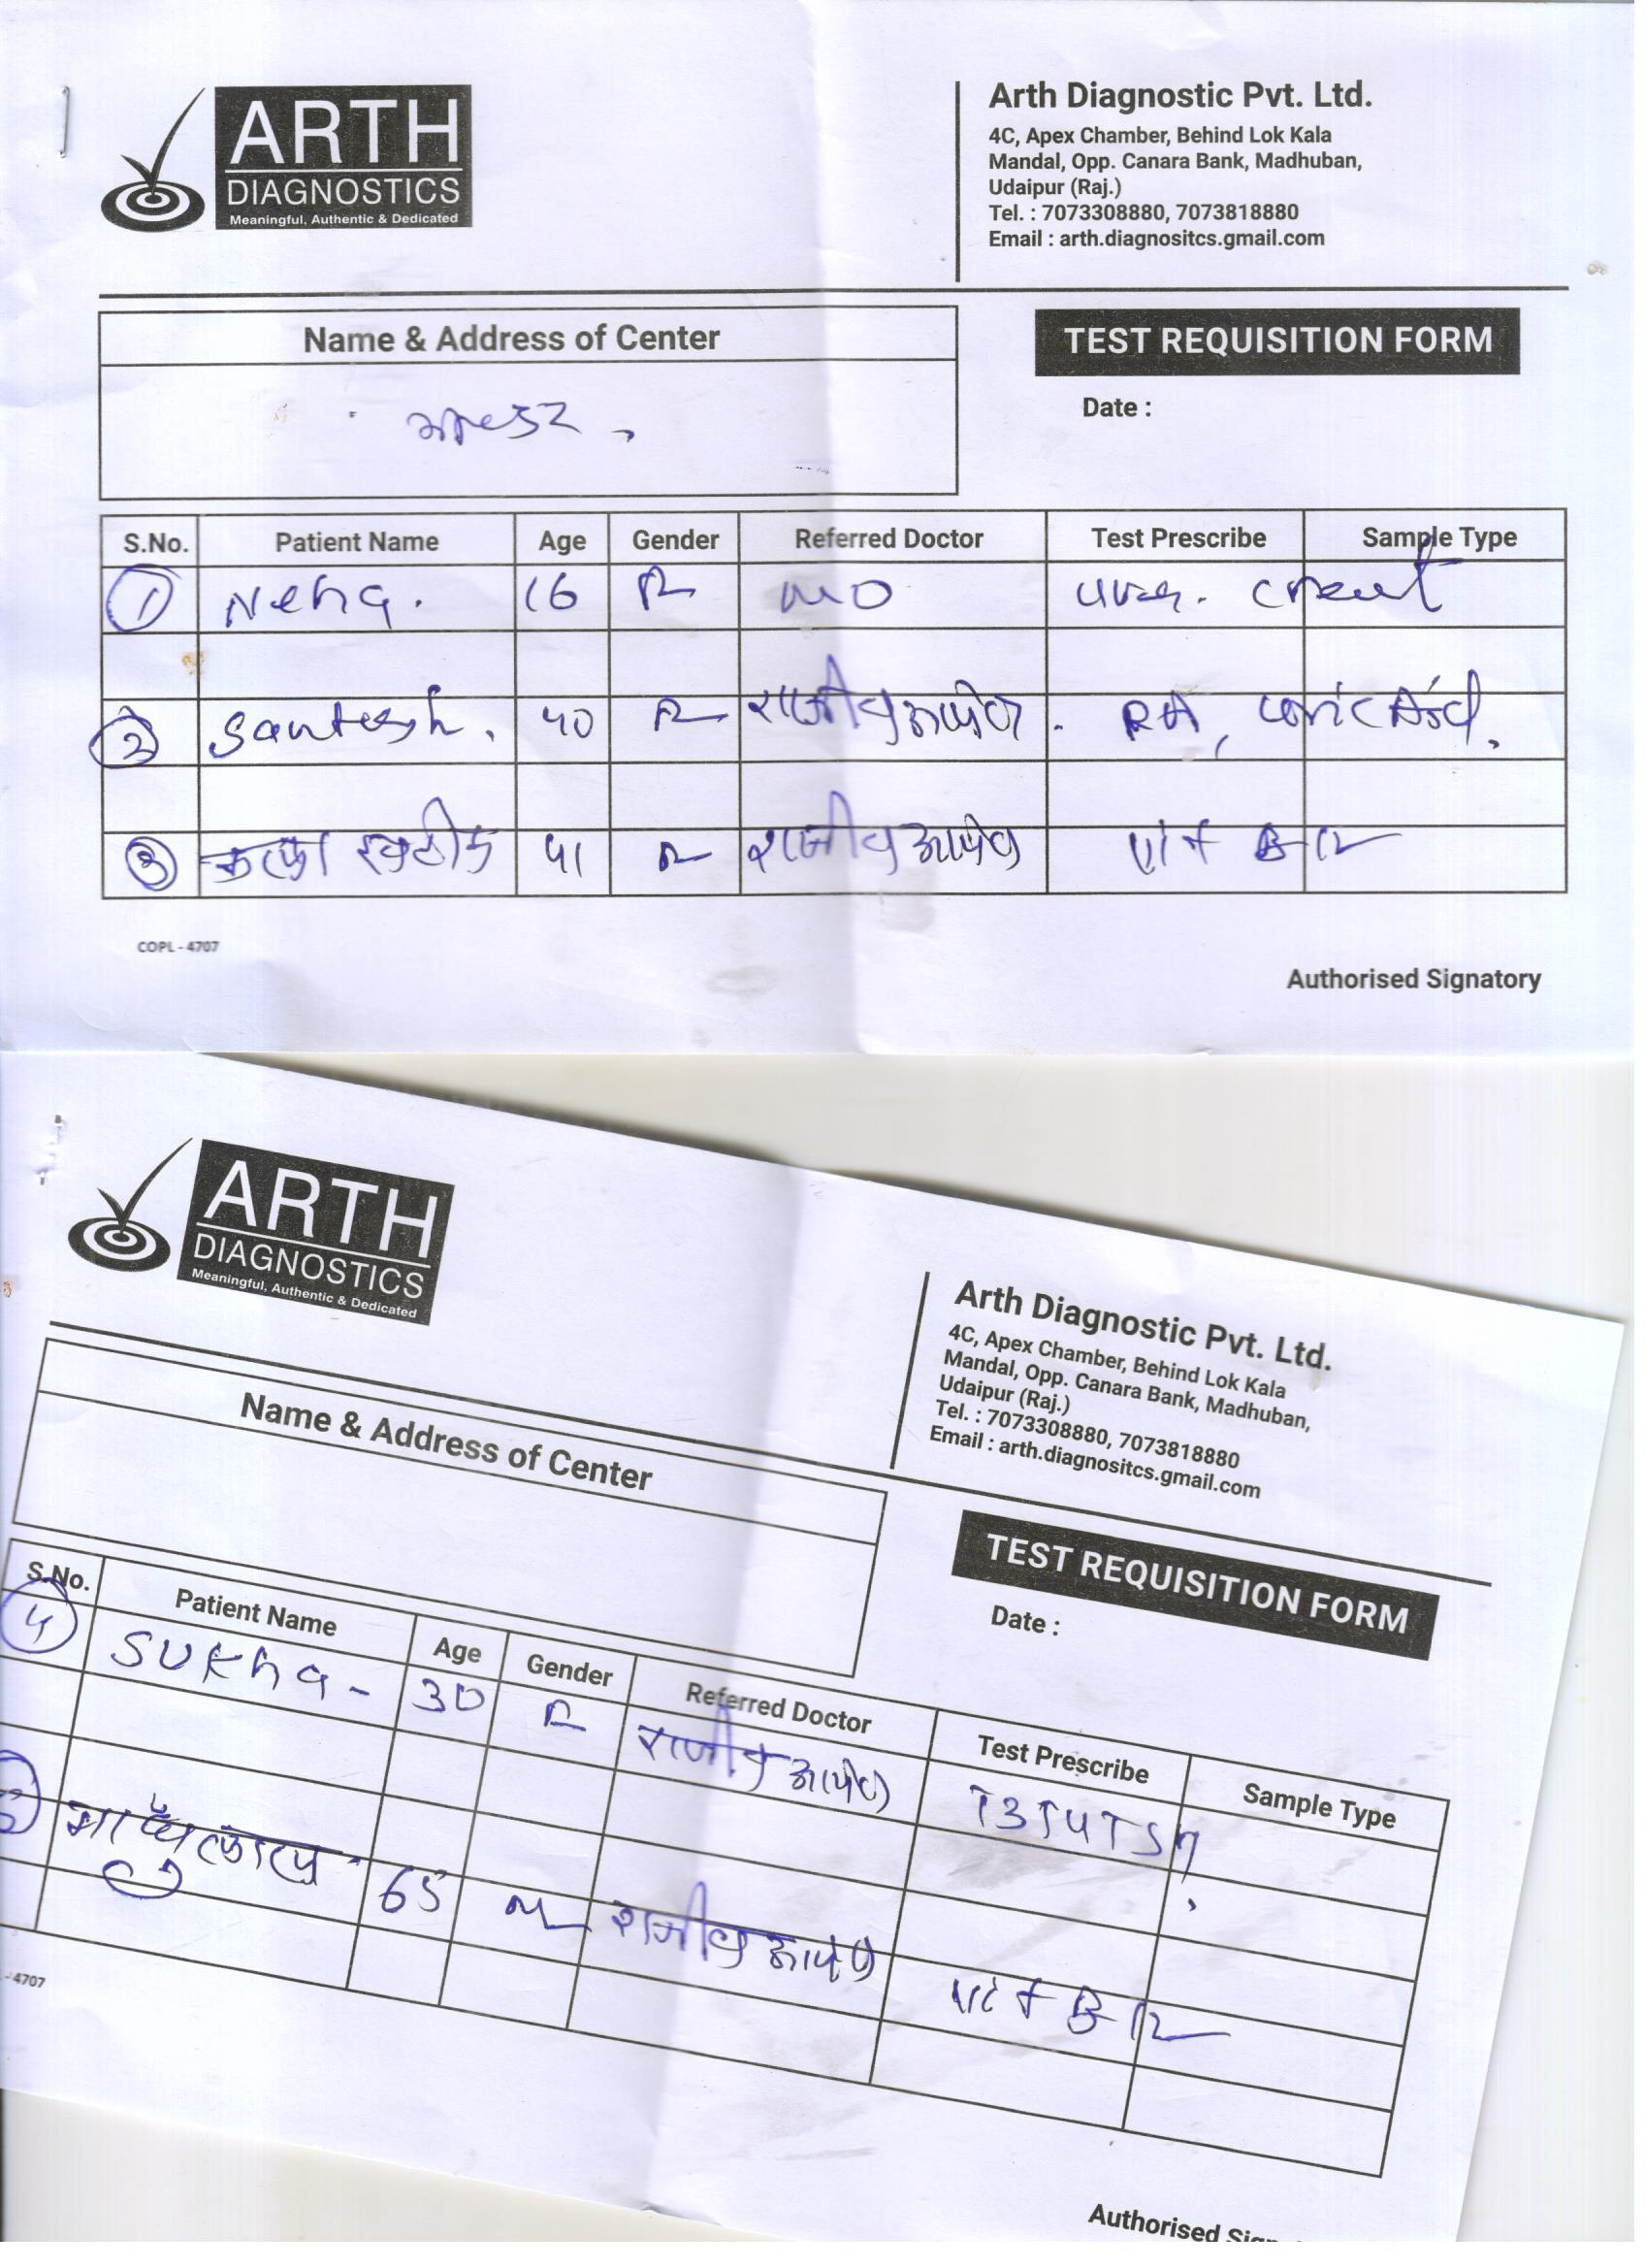 ARTH
DIAGNOSTICS
Meaningful, Authentic & Dedicated
Arth Diagnostic Pvt. Ltd.
4C, Apex Chamber, Behind Lok Kala
Mandal, Opp. Canara Bank, Madhuban,
Udaipur (Raj.)
Tel. : 7073308880, 7073818880
Email : arth.diagnositcs.gmail.com
Name & Address of Center
TEST REQUISITION FORM
Date :
S.No. Patient Name Age Gender Referred Doctor Test Prescribe Sample Type
1 Neha. 16 F MO Urea. creat
2 Santosh. 40 F राजीव RA, Uric Acid.
3 खटीक 41 राजीव Vit B-12
COPL - 4707
Authorised Signatory
ARTH
DIAGNOSTICS
Meaningful, Authentic & Dedicated
Arth Diagnostic Pvt. Ltd.
4C, Apex Chamber, Behind Lok Kala
Mandal, Opp. Canara Bank, Madhuban,
Udaipur (Raj.)
Tel. : 7073308880, 7073818880
Email : arth.diagnositcs.gmail.com
Name & Address of Center
TEST REQUISITION FORM
Date :
S.No. Patient Name Age Gender Referred Doctor Test Prescribe Sample Type
4 SUKHA - 30 F राजीव T3T4TSH
65 M राजीव Vit B-12
- 4707
Authorised